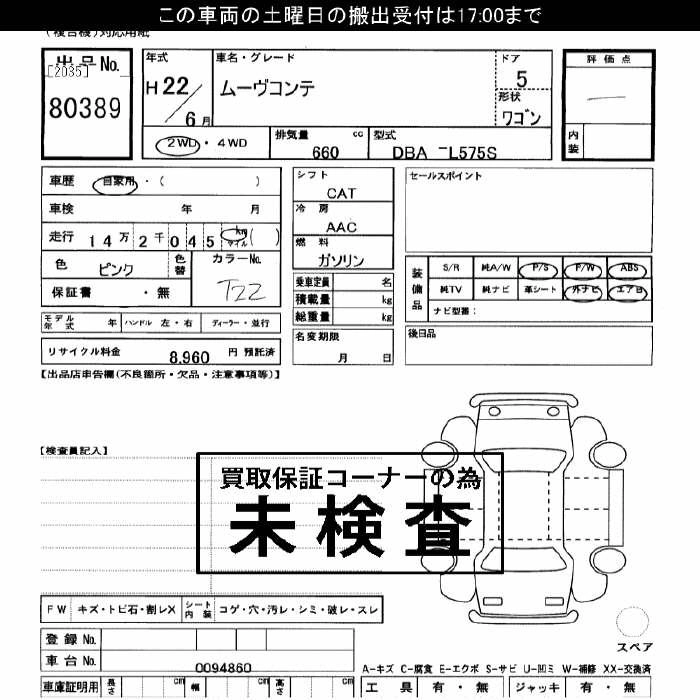 この車両の土曜日の搬出受付は17:00まで
(複合機)対応用紙
出品No. 年式 車名・グレード ドア 評価点
[2035] H 22 ムーヴコンテ 5
80389 6月 形状 ワゴン
2WD・4WD 排気量 cc 660 型式 DBA -L575S 内装
車歴 自家用・( ) シフト CAT セールスポイント
車検 年 月 冷房 AAC
走行 14万2千045 km マイル ( ) 燃料 ガソリン
色 ピンク 色替 カラーNo. T22 装備品 S/R 純A/W P/S P/W ABS
保証書 ・無 乗車定員 名 純TV 純ナビ 革シート 外ナビ エアB
積載量 kg ナビ型番:
モデル年式 年 ハンドル 左・右 ディーラー・並行 総重量 kg
リサイクル料金 8,960 円 預託済 名変期限 月 日 後日品
【出品店申告欄(不良箇所・欠品・注意事項等)】
【検査員記入】
買取保証コーナーの為
未検査
FW キズ・トビ石・割レX シート内装 コゲ・穴・汚レ・シミ・破レ・スレ
登録No. スペア
車台No. 0094860 A-キズ C-腐食 E-エクボ S-サビ U-凹ミ W-補修 XX-交換済
車庫証明用 長さ cm 幅 cm 高さ cm 工具 有・無 ジャッキ 有・無